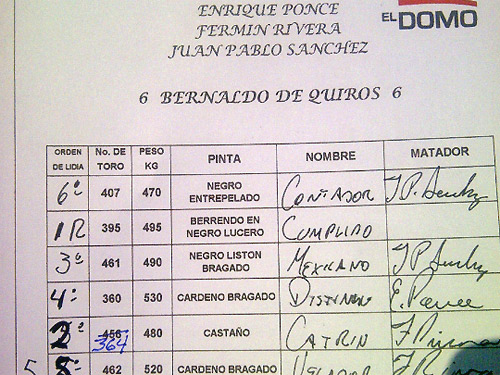 ENRIQUE PONCE
FERMIN RIVERA
JUAN PABLO SANCHEZ
EL DOMO
6 BERNALDO DE QUIROS 6
ORDEN DE LIDIA No. DE TORO PESO KG PINTA NOMBRE MATADOR
6º 407 470 NEGRO ENTREPELADO CONTADOR J.P. Sanchez
1R 395 495 BERRENDO EN NEGRO LUCERO CUMPLIDO
3º 461 490 NEGRO LISTON BRAGADO MEXICANO J.P. Sanchez
4º 360 530 CARDENO BRAGADO E. Ponce
2º 456 364 480 CASTAÑO CATRIN F.
5 5º 462 520 CARDENO BRAGADO